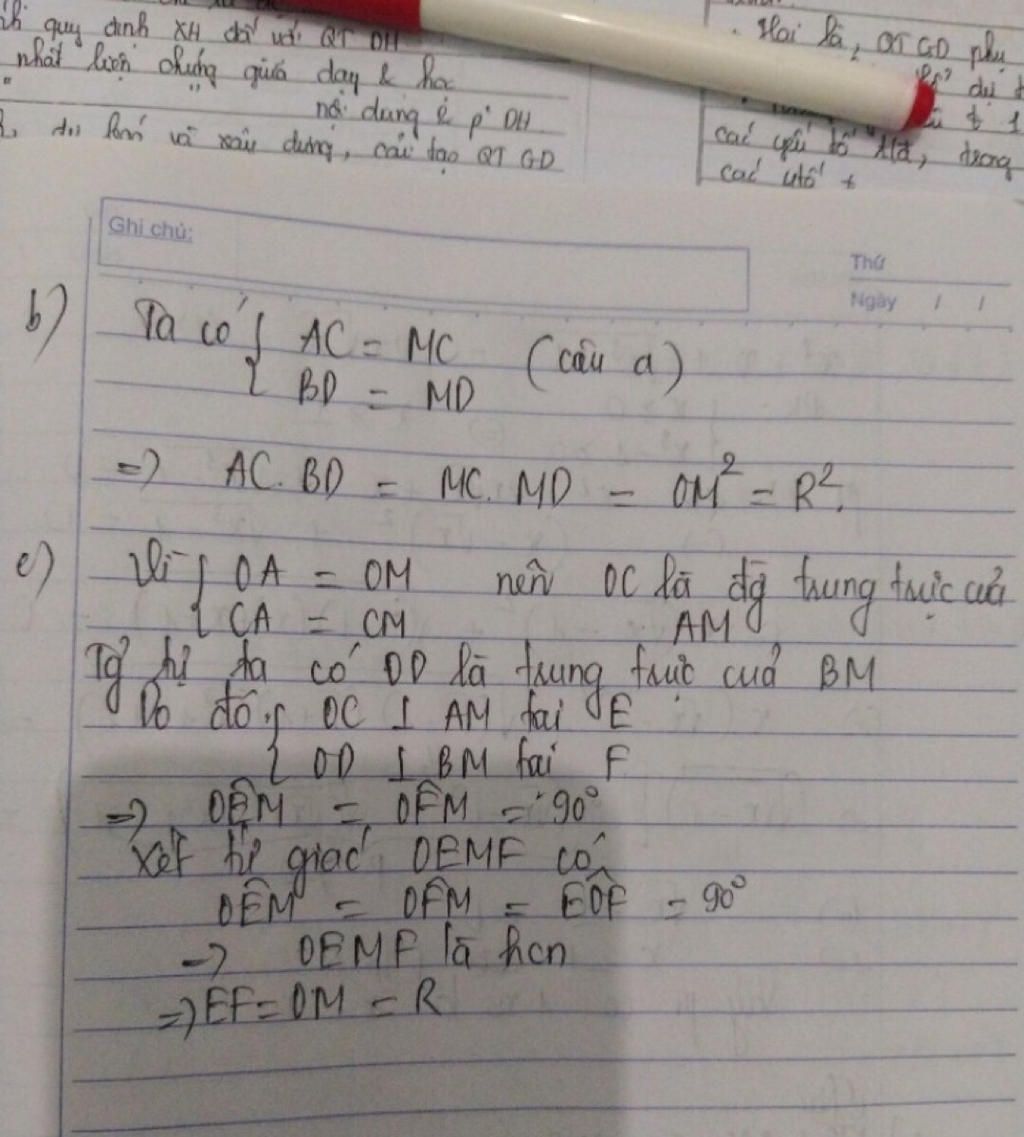 quy định XH đối với QT DH
nhất biện chứng giữa dạy & học
nội dung & p² DH
và xây dựng, cải tạo QT GD
. Hai là, QT GD phụ
các yếu tố
trong
các
Ghi chú:
Thứ
Ngày / /
b) Ta có { AC = MC (câu a)
BD = MD
=> AC.BD = MC.MD = OM² = R².
c) Vì { OA = OM nên OC là đg trung trực của
CA = CM AM
Tg tự ta có OD là trung trực của BM
Do đó { OC ⊥ AM tại E
OD ⊥ BM tại F
=> OÊM = OF̂M = 90°
Xét tứ giác OEMF có
OÊM = OF̂M = EÔF = 90°
-> OEMF là hcn
=> EF = OM = R